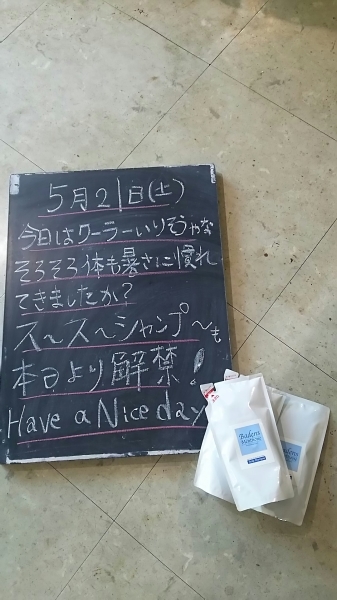 5月21日(土)
今日はクーラーいりそうやな
そろそろ体も暑さに慣れ
てきましたか?
ス〜ス〜シャンプ〜も
本日より解禁!
Have a Nice day
Badens